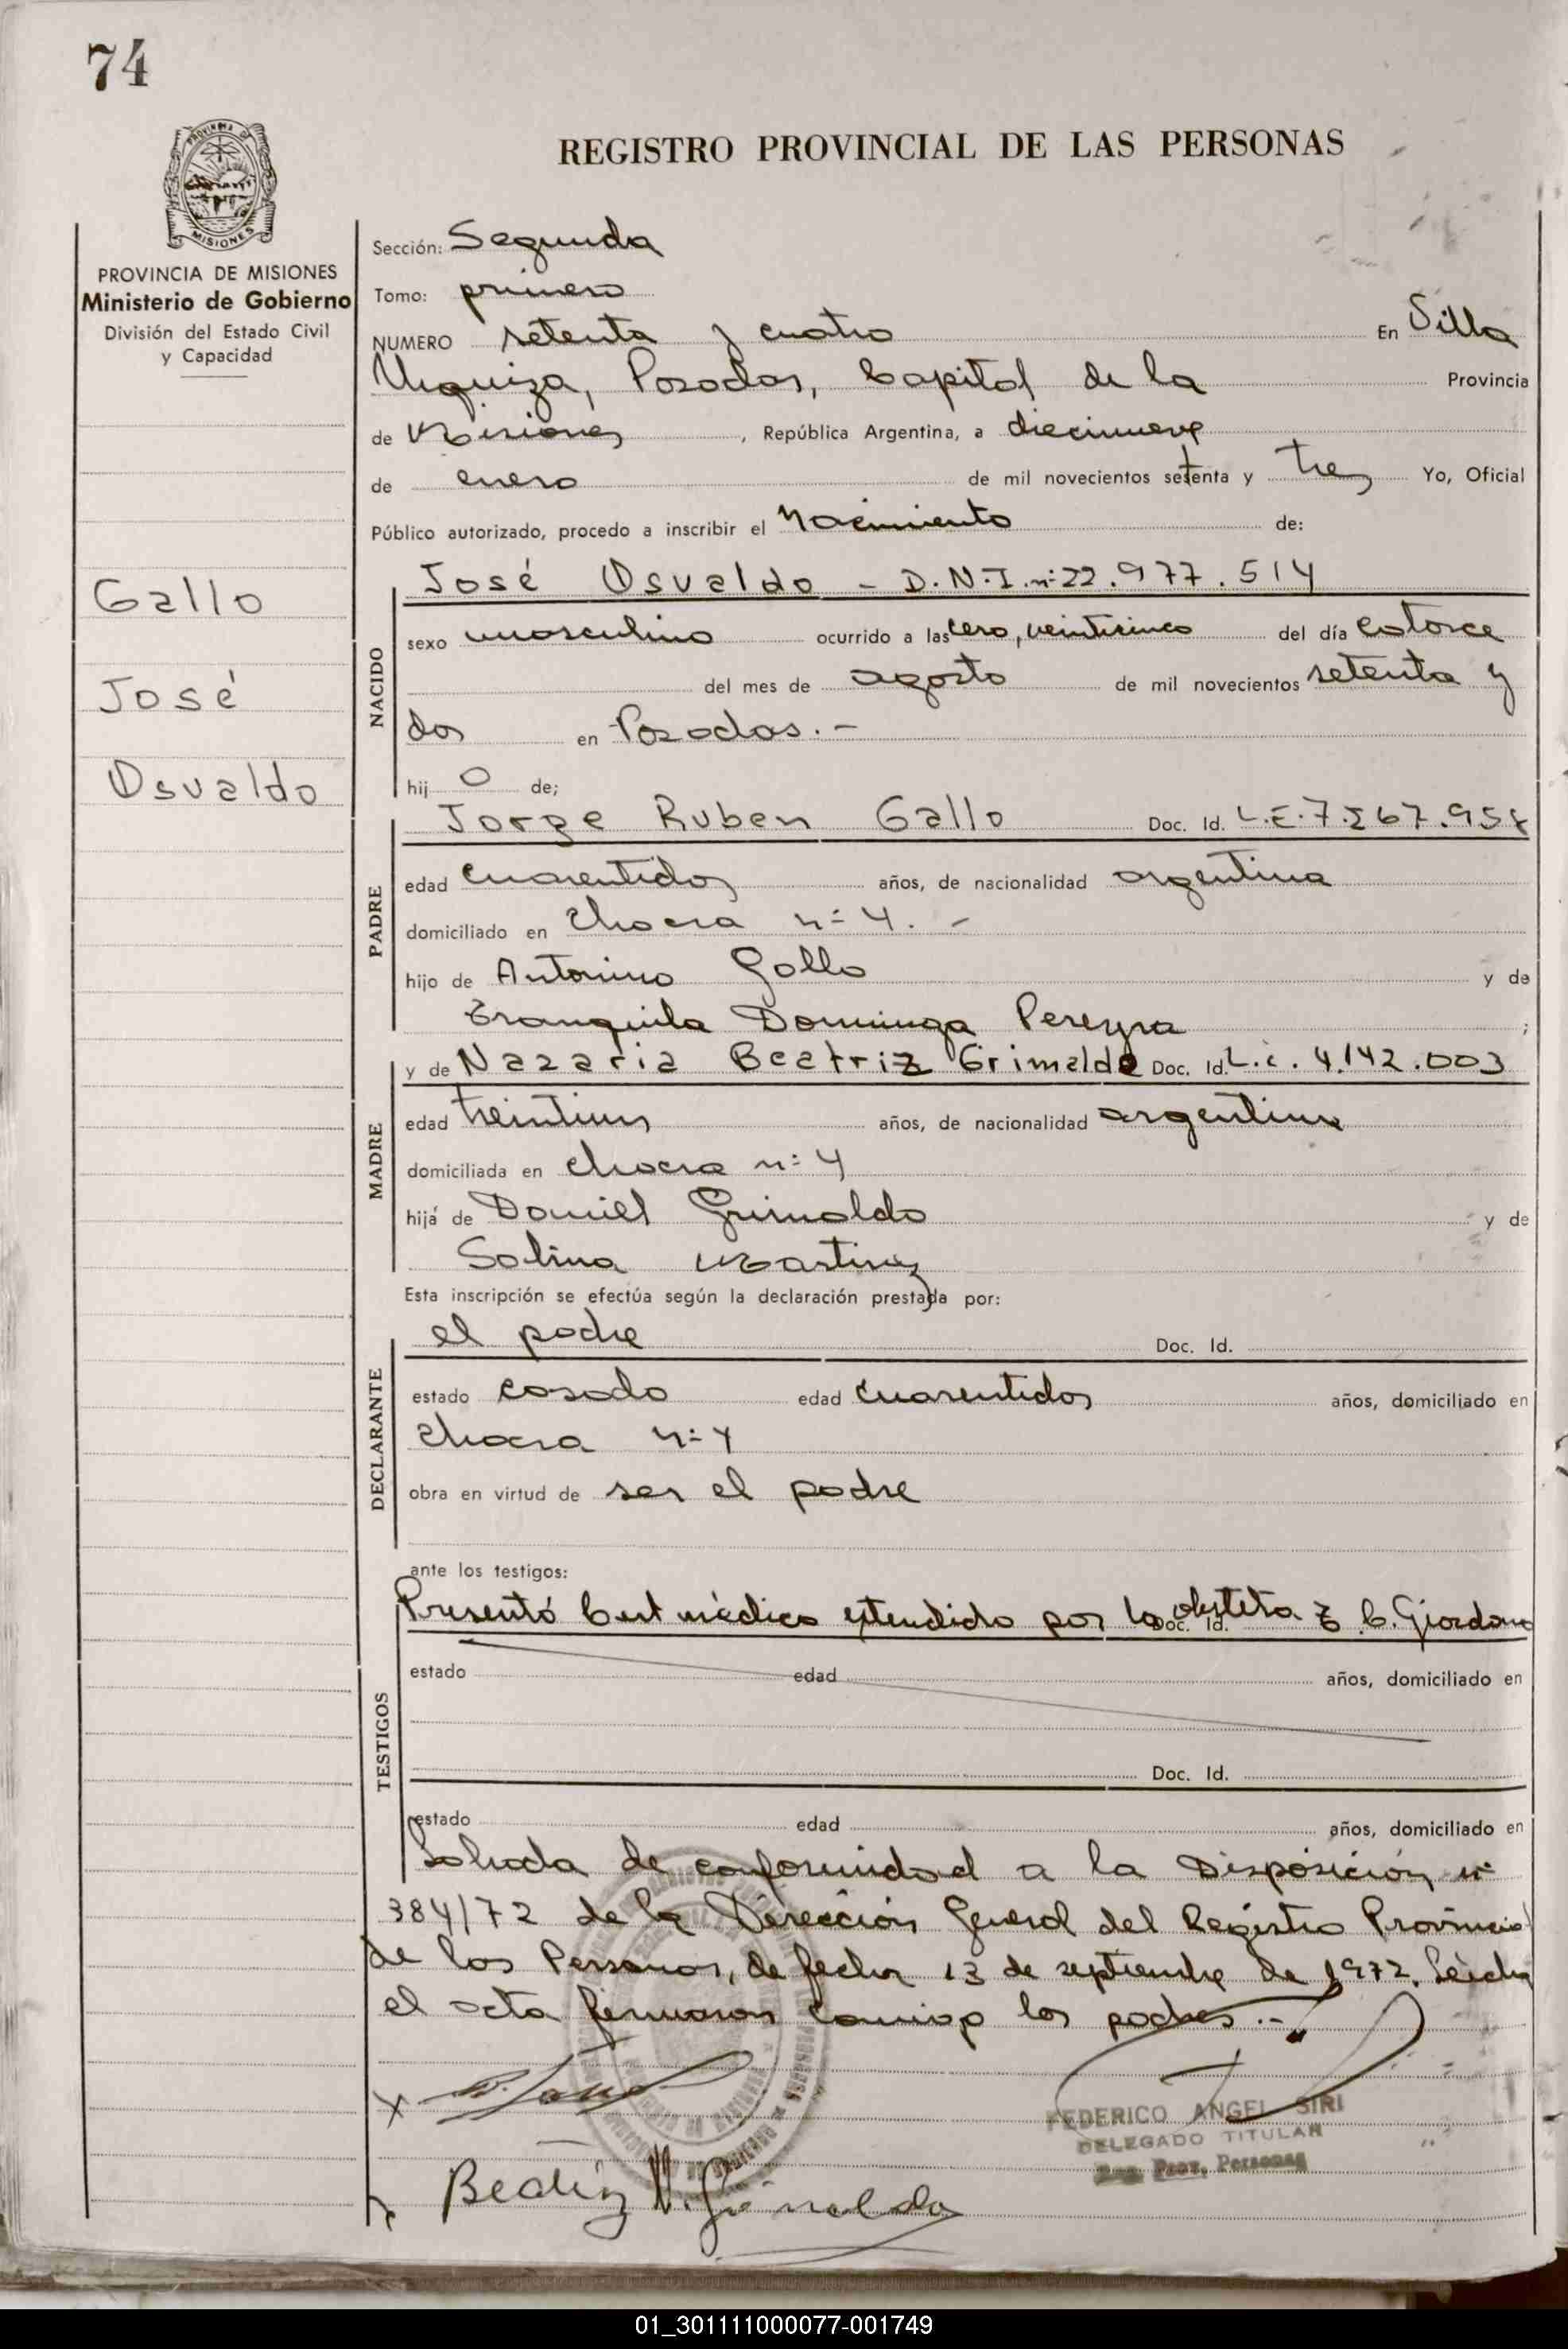 74
REGISTRO PROVINCIAL DE LAS PERSONAS
PROVINCIA DE
MISIONES
PROVINCIA DE MISIONES
Ministerio de Gobierno
División del Estado Civil
y Capacidad
Gallo
José
Osvaldo
Sección: Segunda
Tomo: primero
NUMERO setenta y cuatro En Villa
Urquiza, Posadas, Capital de la Provincia
de Misiones, República Argentina, a diecinueve
de enero de mil novecientos setenta y tres Yo, Oficial
Público autorizado, procedo a inscribir el Nacimiento de:
NACIDO
José Osvaldo - D.N.I. nº 22.977.514
sexo masculino ocurrido a las cero, veinticinco del día catorce
del mes de agosto de mil novecientos setenta y
dos en Posadas.-
hij o de;
PADRE
Jorge Ruben Gallo Doc. Id. L.E. 7.
edad cuarentidos años, de nacionalidad argentina
domiciliado en chacra nº 4.-
hijo de Antonino Gallo y de
Tranquila Dominga Pereyra ;
MADRE
y de Nazaria Beatriz Grimaldo Doc. Id. L.c. 4.142.003
edad treintiun años, de nacionalidad argentina
domiciliada en chacra nº 4
hija de Daniel Grimaldo y de
Salina Martinez
Esta inscripción se efectúa según la declaración prestada por:
DECLARANTE
el padre Doc. Id.
estado casado edad cuarentidos años, domiciliado en
chacra nº 4
obra en virtud de ser el padre
TESTIGOS
ante los testigos:
Presentó Cert médico extendido por la obstetra C. Giordano
Doc. Id.
estado edad años, domiciliado en
Doc. Id.
estado edad años, domiciliado en
Labrada de conformidad a la Disposición nº
384/72 de la Dirección General del Registro Provincial
de las Personas, de fecha 13 de septiembre de 1972. Leída
el acta firmaron conmigo los padres.-
FEDERICO ANGEL SIRI
DELEGADO TITULAR
Reg. Prov. Personas
Beatriz N. Grimaldo
01_301111000077-001749